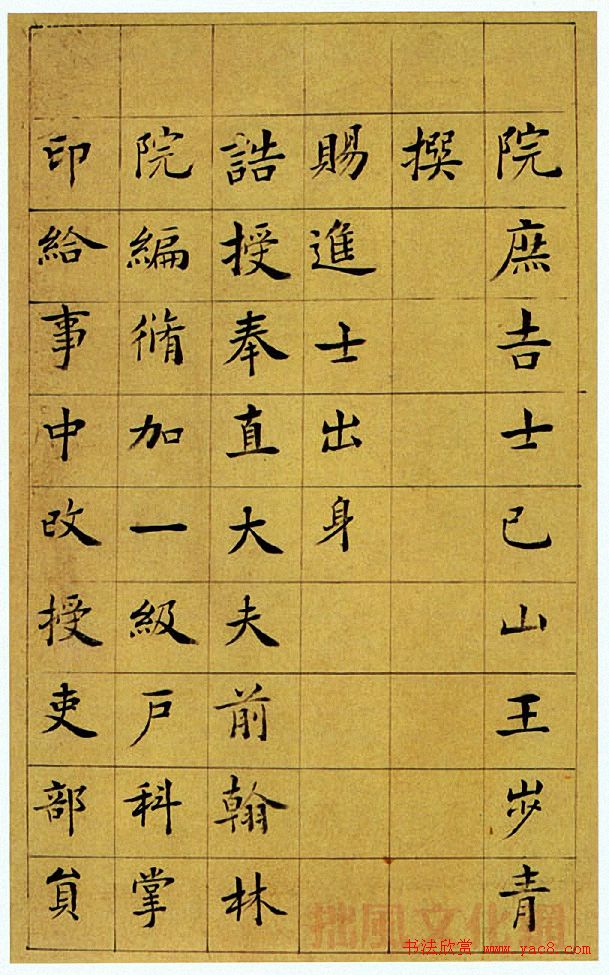 院庶吉士已山王步青
撰
賜進士出身
誥授奉直大夫前翰林
院編脩加一級戸科掌
印給事中改授吏部貟
拙風文化網
书法欣赏 www.yac8.com